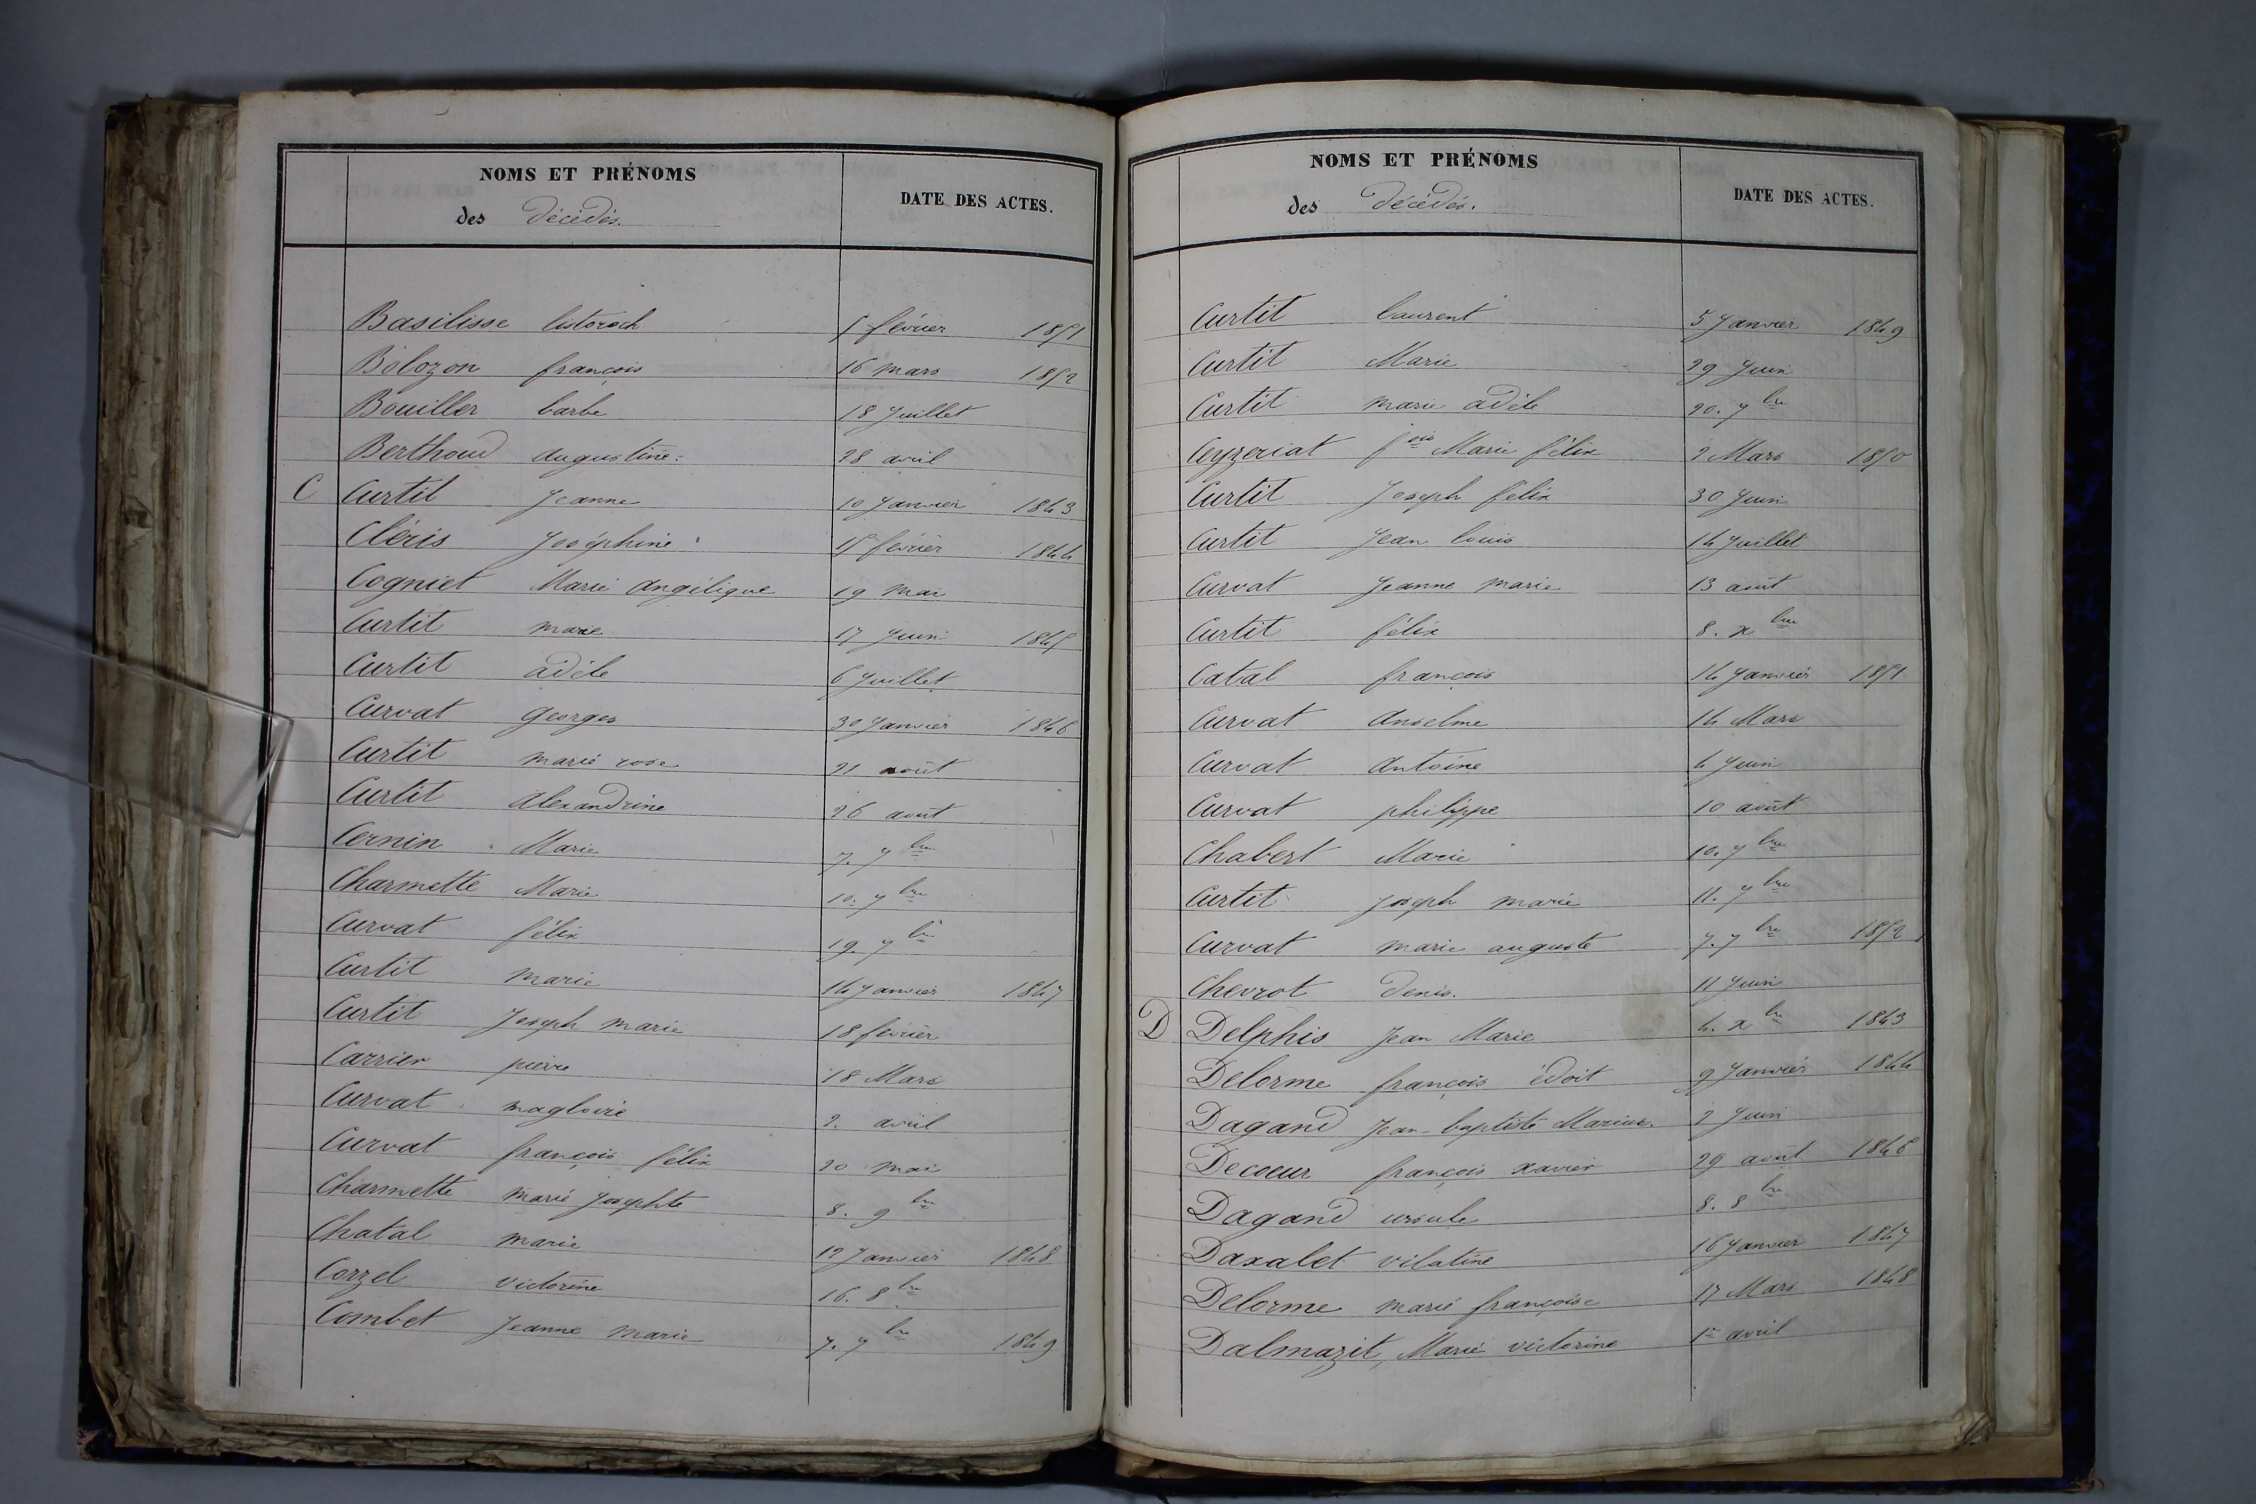 NOMS ET PRÉNOMS
des Décédés.
DATE DES ACTES.
Basilisse 5 février 1851
Bolozon françois 16 mars 1852
Bouiller barbe 18 Juillet
Berthoud augustine 28 avril
C Curtil Jeanne 10 Janvier 1843
Cléris Joséphine 15 février 1844
Cogniet Marie Angélique 19 mai
Curtit marie 17 Juin 1845
Curtit adèle 6 Juillet
Curvat Georges 30 Janvier 1846
Curtit marie rose 21 août
Curtit Alexandrine 26 août
Cernin Marie 7. 7bre
Charmette Marie 10. 7bre
Curvat félix 19. 7bre
Curtit marie 14 Janvier 1847
Curtit Joseph marie 18 février
Carrier pierre 18 Mars
Curvat magloire 2. avril
Curvat françois félix 20 mai
Charmette marie Josephte 8. 9bre
Chatal marie 12 Janvier 1848
Corzel victorine 16. 8bre
Combet Jeanne marie 7. 7bre 1849
NOMS ET PRÉNOMS
des Décédés.
DATE DES ACTES.
Curtit Laurent 5 Janvier 1849
Curtit Marie 29 Juin
Curtit marie adèle 20. 7bre
Ceyzeriat fçois Marie félix 2 Mars 1850
Curtit Joseph félix 30 Juin
Curtit Jean Louis 14 Juillet
Curvat Jeanne marie 13 août
Curtit félix 8. xbre
Catal françois 14 Janvier 1851
Curvat Anselme 14 Mars
Curvat Antoine 4 Juin
Curvat philippe 10 août
Chabert Marie 10. 7bre
Curtit Joseph marie 11. 7bre
Curvat marie auguste 7. 7bre 1852
Chevrot Denis. 11 Juin
D Delphis Jean Marie 4. xbre 1843
Delorme françois 9 Janvier 1844
Dagand Jean-baptiste Marius. 2 Juin
Decoeur françois xavier 29 août 1846
Dagand ursule 8. 8bre
Daxalet vilatine 16 Janvier 1847
Delorme marie françoise 17 Mars 1848
Dalmazit, Marie victorine 1er avril